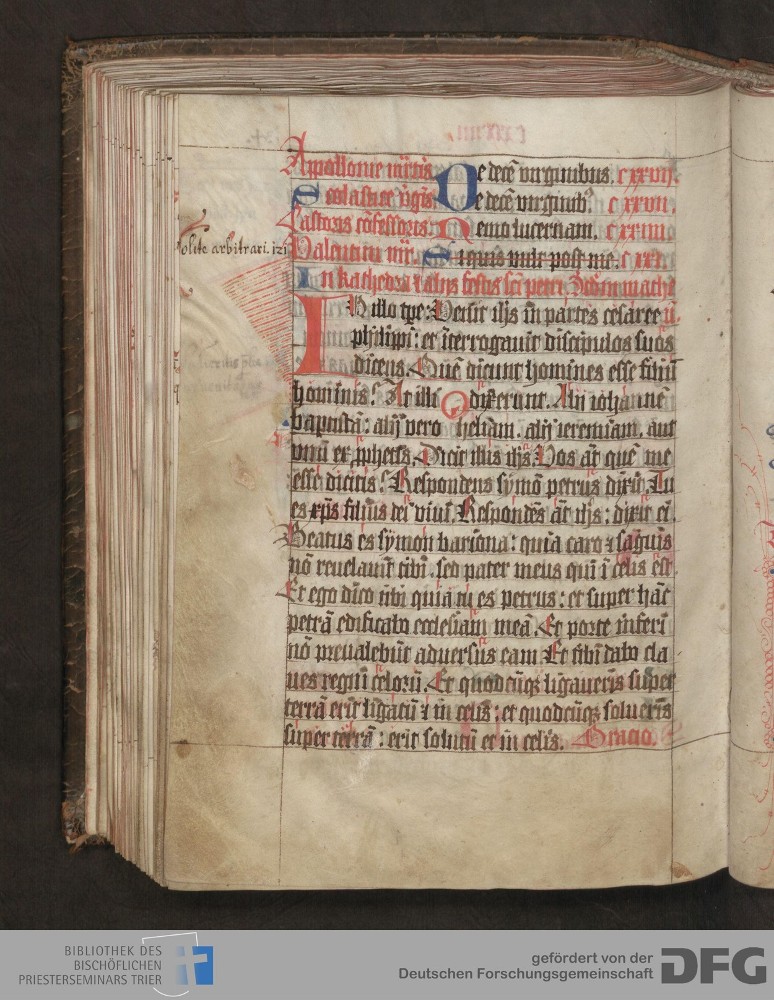 Appollonie mr̄tis. De decē virginibus. cxxvij.
Scolastice v̄gīs. De decē virginib9. cxxvij.
Castoris cōfessoris. Nemo lucernam. cxxiiij
Valentini mr̄. Si quis vult post me. cxxi.
In kathedra ⁊ alijs festis sc̄i petri. Scd̄m mathe
In illo tp̄e: Venit ih̄s in partes cesaree
philippi: et īterrogauit discipulos suos
dicens. Quē dicunt homines esse filiū
hominis? At illi dixerunt. Alij iohannē
baptistā: alij vero heliam. alij ieremiam. aut
vnū ex ꝓphetis. Dicit illis ih̄s. Vos āt quē me
esse dicitis? Respondens symō petrus dixit. Tu
es xp̄s filius dei viui. Respondēs āt ih̄s: dixit ei.
Beatus es symon bariona: quia caro ⁊ sāguis
nō reuelauit tibi. sed pater meus qui ī celis est.
Et ego dico tibi quia tu es petrus: et super hāc
petrā edificabo ecclesiam meā. Et porte inferi
nō preualebūt aduersus eam. Et tibi dabo cla
ues regni celorū. Et quodcūqꝫ ligaueris super
terrā erit ligatū ⁊ in celis: et quodcūqꝫ solueris
super terrā: erit solutū et in celis. Oracio.
olite arbitrari.
BIBLIOTHEK DES
BISCHÖFLICHEN
PRIESTERSEMINARS TRIER
gefördert von der
Deutschen Forschungsgemeinschaft
DFG